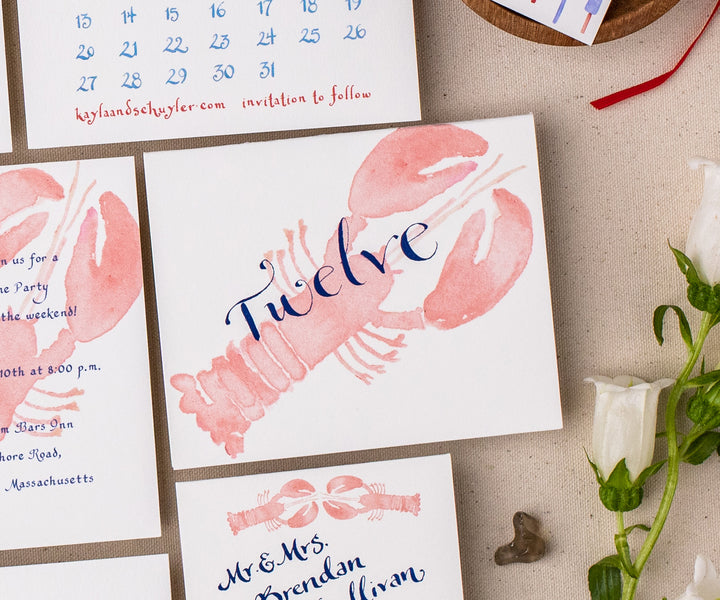 13 14 15 16 17 18 19
20 21 22 23 24 25 26
27 28 29 30 31
kaylaandschuyler.com invitation to follow
us for a
Party
the weekend!
10th at 8:00 p.m.
Bars Inn
Road,
Massachusetts
Twelve
Mr. & Mrs.
Brendan